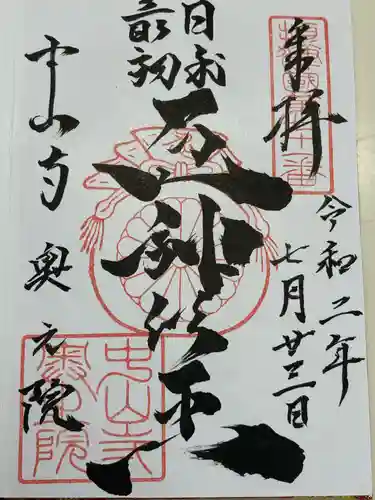 奉拝
令和二年
七月廿三日
日本
最初
厄神明王
中山寺奥之院
中山寺
奥之院